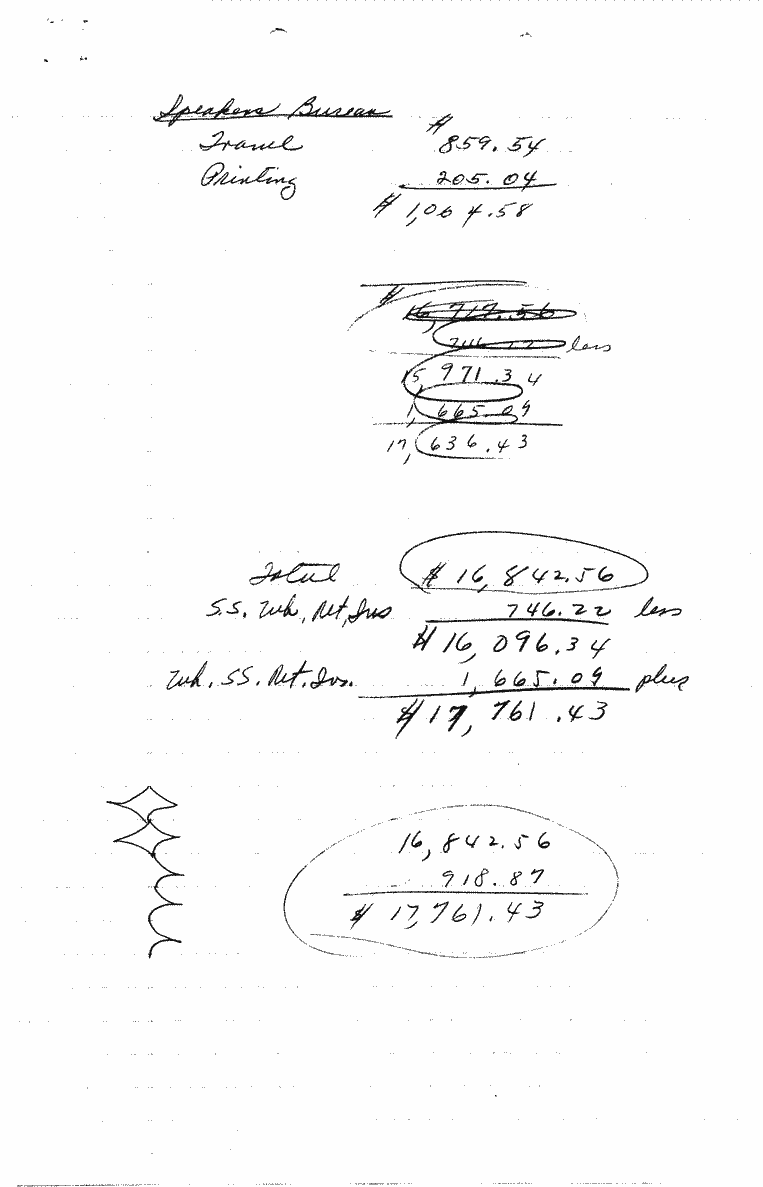 Speakers Bureau
Travel $ 859.54
Printing 205.04
$ 1,064.58
$ 16,717.56
746.22 less
15,971.34
1,665.09
17,636.43
Total $ 16,842.56
S.S. Wh, Ret, Ins 746.22 less
$ 16,096.34
Wh. SS. Ret. Ins. 1,665.09 plus
$ 17,761.43
16,842.56
918.87
$ 17,761.43